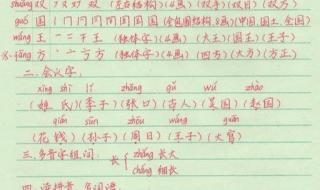 shuāng 双 フ 又 双 双 (左右结构)(4画)(双手)(双日)(双方)
guó 国 丨 冂 冂 冃 用 国 国 国 (全包围结构,8画)(中国,国土,全国)
wáng 王 一 二 干 王 (独体字)(4画)(大王)(国王)(王子)
fāng 方 丶 亠 方 方 (独体字)(4画)(四方)(大方)(方正)
二.会认字.
xìng shì lǐ zhāng gǔ wú zhào
(姓氏)(李子)(张口)(古人)(吴国)(赵国)
qián sūn zhōu wáng guān
(花钱)(孙子)(周日)(王子)(大官)
三.多音字组词:
长 zhǎng 长大
cháng 细长